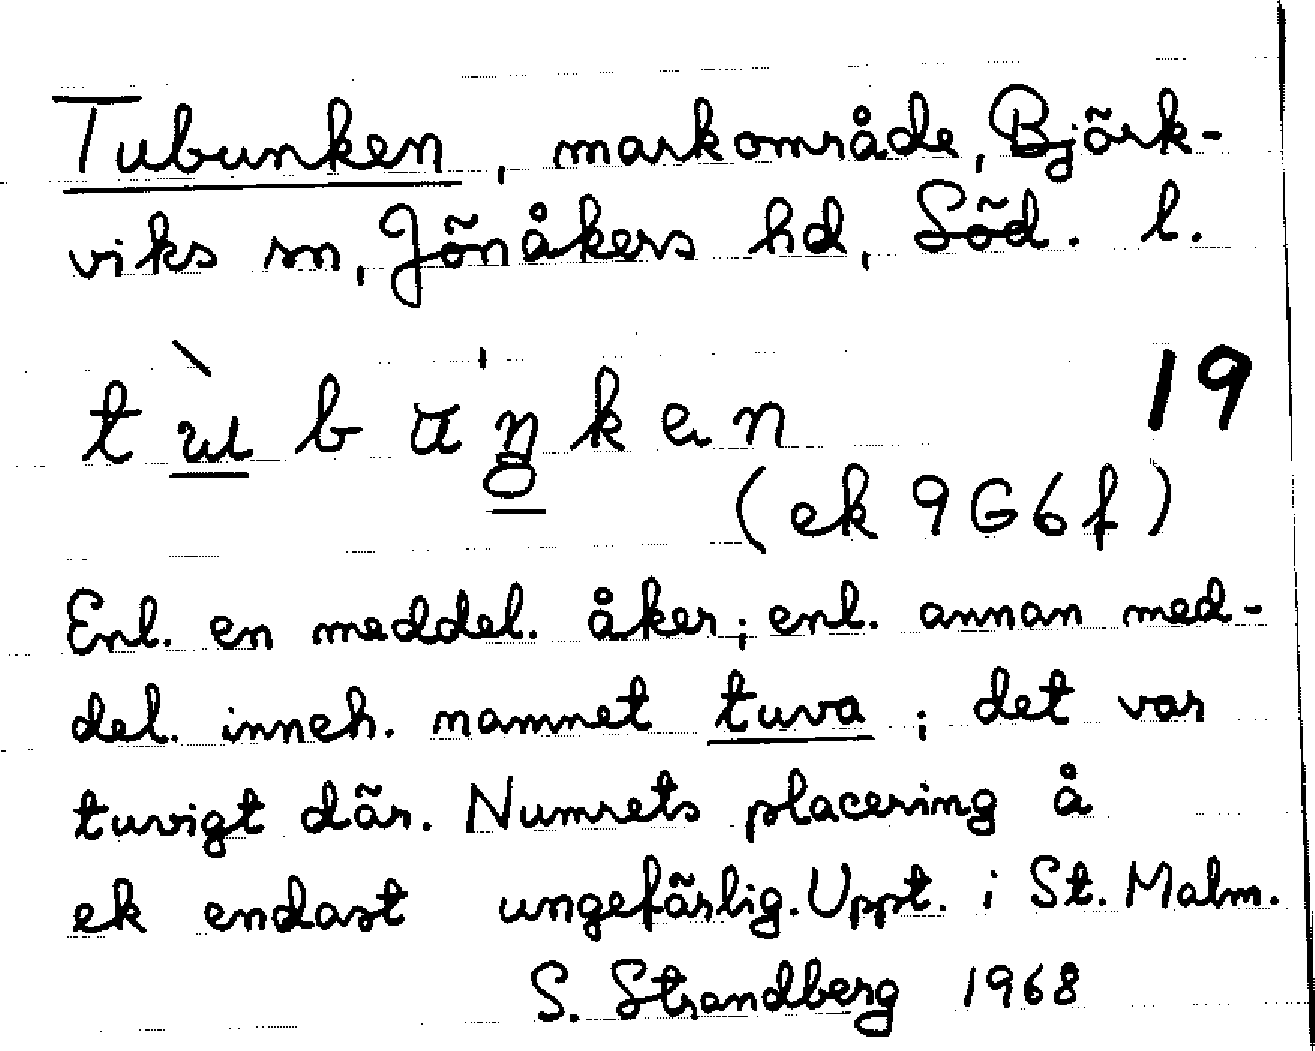 Tubunken, markområde, Björk-
viks sn, Jönåkers hd, Söd. l.
19
(ek 9G6f)
Enl. en meddel. åker; enl. annan med-
del. inneh. namnet tuva; det var
tuvigt där. Numrets placering å
ek endast ungefärlig. Uppt. i St. Malm.
S. Strandberg 1968